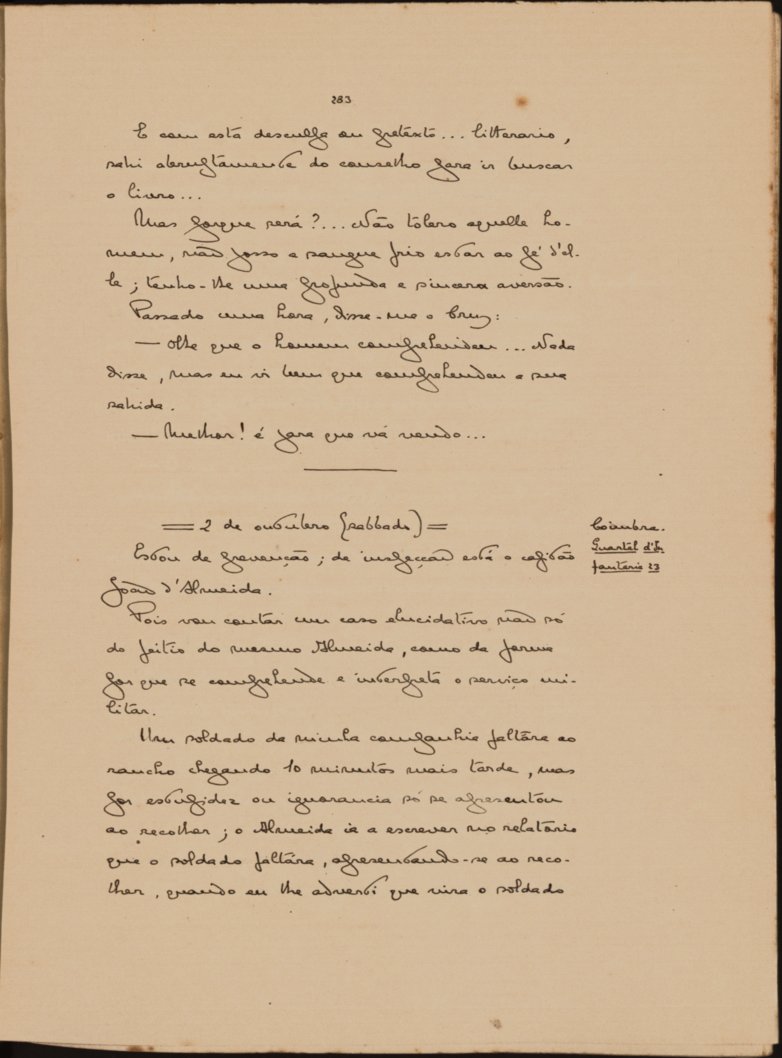 283
E com esta desculpa ou pretexto... litterario,
sahi abruptamente do conselho para ir buscar
o livro...
Mas porque será?... Não tolero aquelle ho-
mem, não posso a sangue frio estar ao pé d'el-
le; tenho-lhe uma profunda e sincera aversão.
Passado uma hora, disse-me o Cruz:
— Olhe que o homem comprehendeu... Nada
disse, mas eu vi bem que comprehendeu a sua
sahida.
— Melhor! é para que vá vendo...
= 2 de outubro (sabbado) =
Coimbra.
Quartel d'In
fantaria 23
Estou de prevenção; de inspecção está o capitão
João d'Almeida.
Pois vou contar um caso elucidativo não só
do feitio do mesmo Almeida, como da forma
por que se comprehende e interpreta o serviço mi-
litar.
Um soldado da minha companhia faltára ao
rancho chegando 10 minutos mais tarde, mas
por estupidez ou ignorancia só se apresentou
ao recolher; o Almeida ia a escrever no relatorio
que o soldado faltára, apresentando-se ao reco-
lher, quando eu lhe adverti que vira o soldado